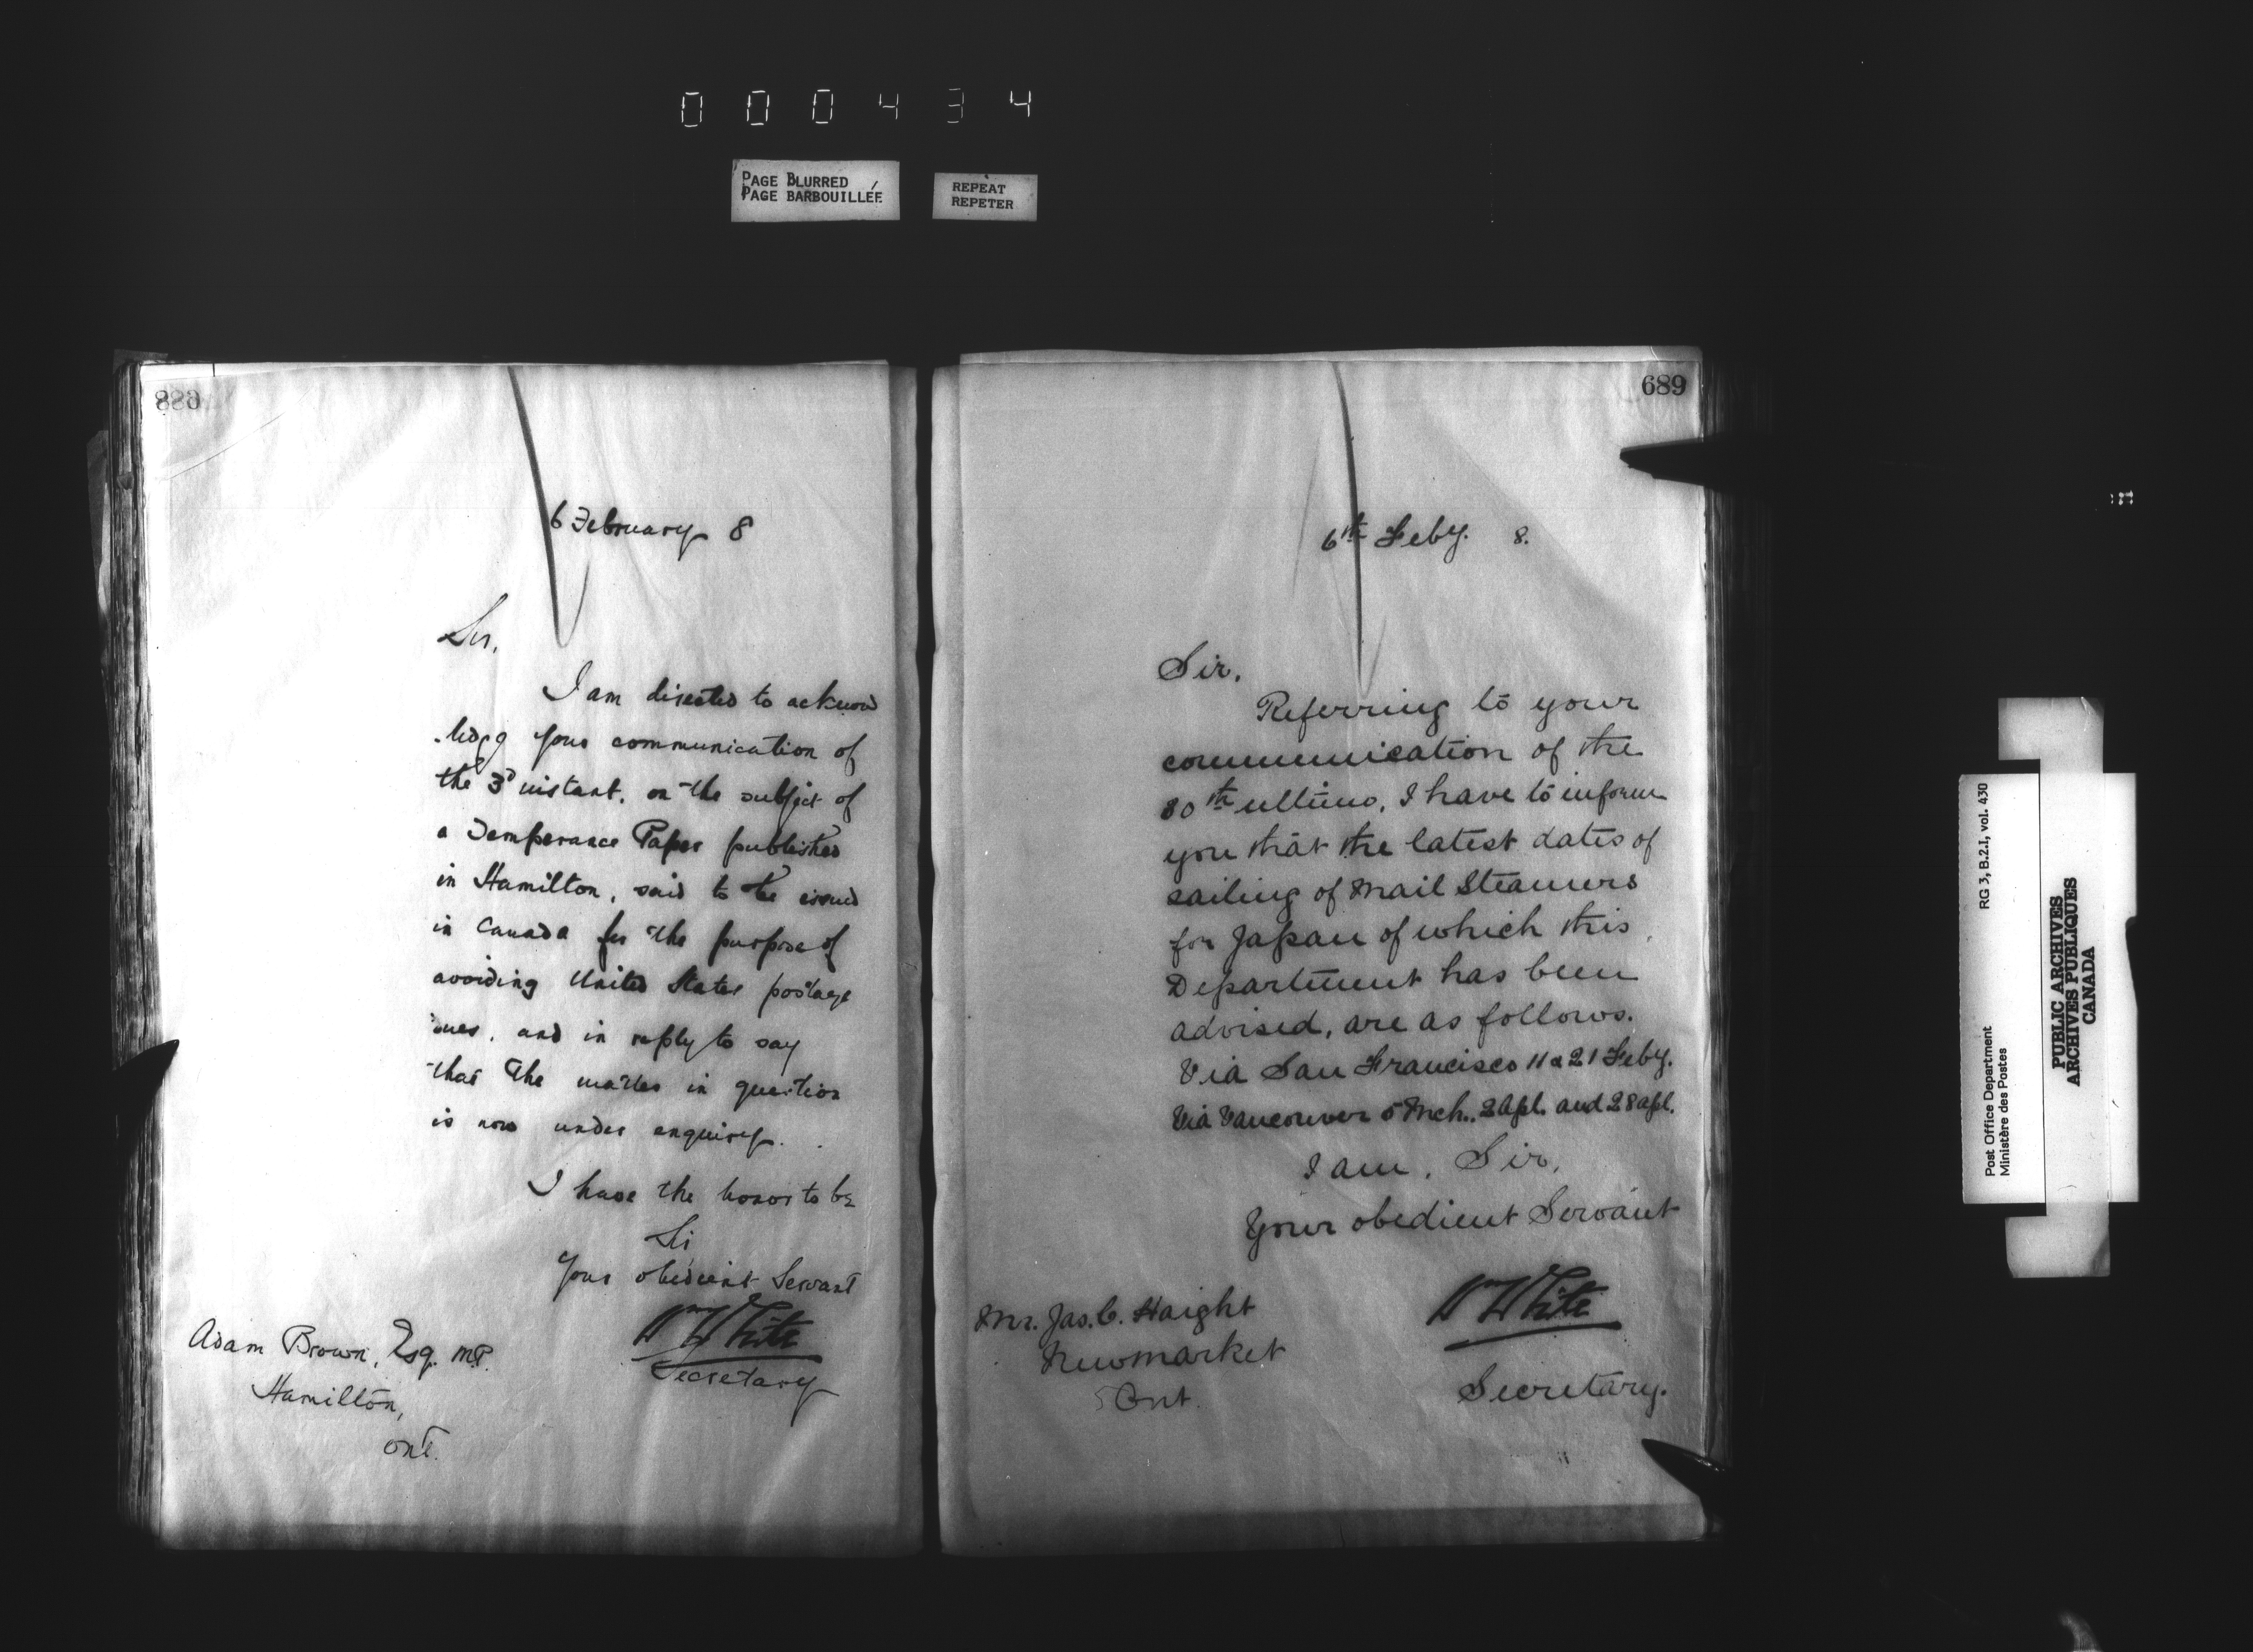 000434
PAGE BLURRED
PAGE BARBOUILLÉE
REPEAT
REPETER
688
6 February 8
Sir,
I am directed to acknow
-ledge your communication of
the 3d instant, on the subject of
a Temperance Paper published
in Hamilton, said to be issued
in Canada for the purpose of
avoiding United States postage
and in reply to say
that the matter in question
is now under enquiry.
I have the honor to be
Sir
Your obedient Servant
Wm White
Secretary
Adam Brown, Esq. M.P.
Hamilton,
Ont.
689
6th Feby. 8.
Sir,
Referring to your
communication of the
30th ultimo, I have to inform
you that the latest dates of
sailing of Mail Steamers
for Japan of which this
Department has been
advised, are as follows.
Via San Francisco 11 & 21 Feby.
Via Vancouver 5 Mch., 2 Apl. and 28 Apl.
I am, Sir,
Your obedient Servant
Wm White
Secretary.
Mr. Jas. C. Haight
Newmarket
Ont.
Post Office Department RG 3, B.2.I, vol. 430
Ministère des Postes
PUBLIC ARCHIVES
ARCHIVES PUBLIQUES
CANADA